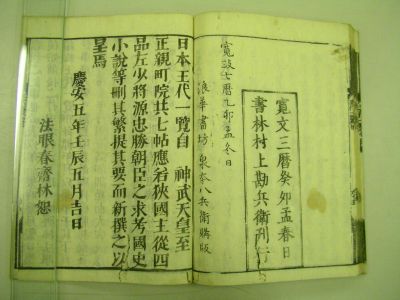 寛文三暦癸卯孟春日
書林村上勘兵衛刊行
寛政七暦乙卯孟冬日
浪華書坊 泉本八兵衛購版
日本王代一覧自 神武天皇至
正親町院共七帖應若狹國主從四
品左少將源忠勝朝臣之求考國史
小說等刪其繁提其要而新撰之以
呈焉
慶安五年壬辰五月吉日
法眼春齋林恕